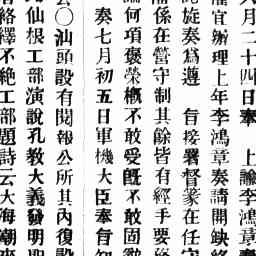 月二十四日奉　上諭李鴻
宜辦理上年李鴻章奏請開缺終
旋奏為遵　旨接署督篆在任守
係在營守制其餘皆有經手要
何項褒榮概不敢受既不敢固
奏七月初五日軍機大臣奉旨
○汕頭設有閱報公所其內復設
仙根工部演說孔教大義發明
絡繹不絕工部題詩云大海潮來